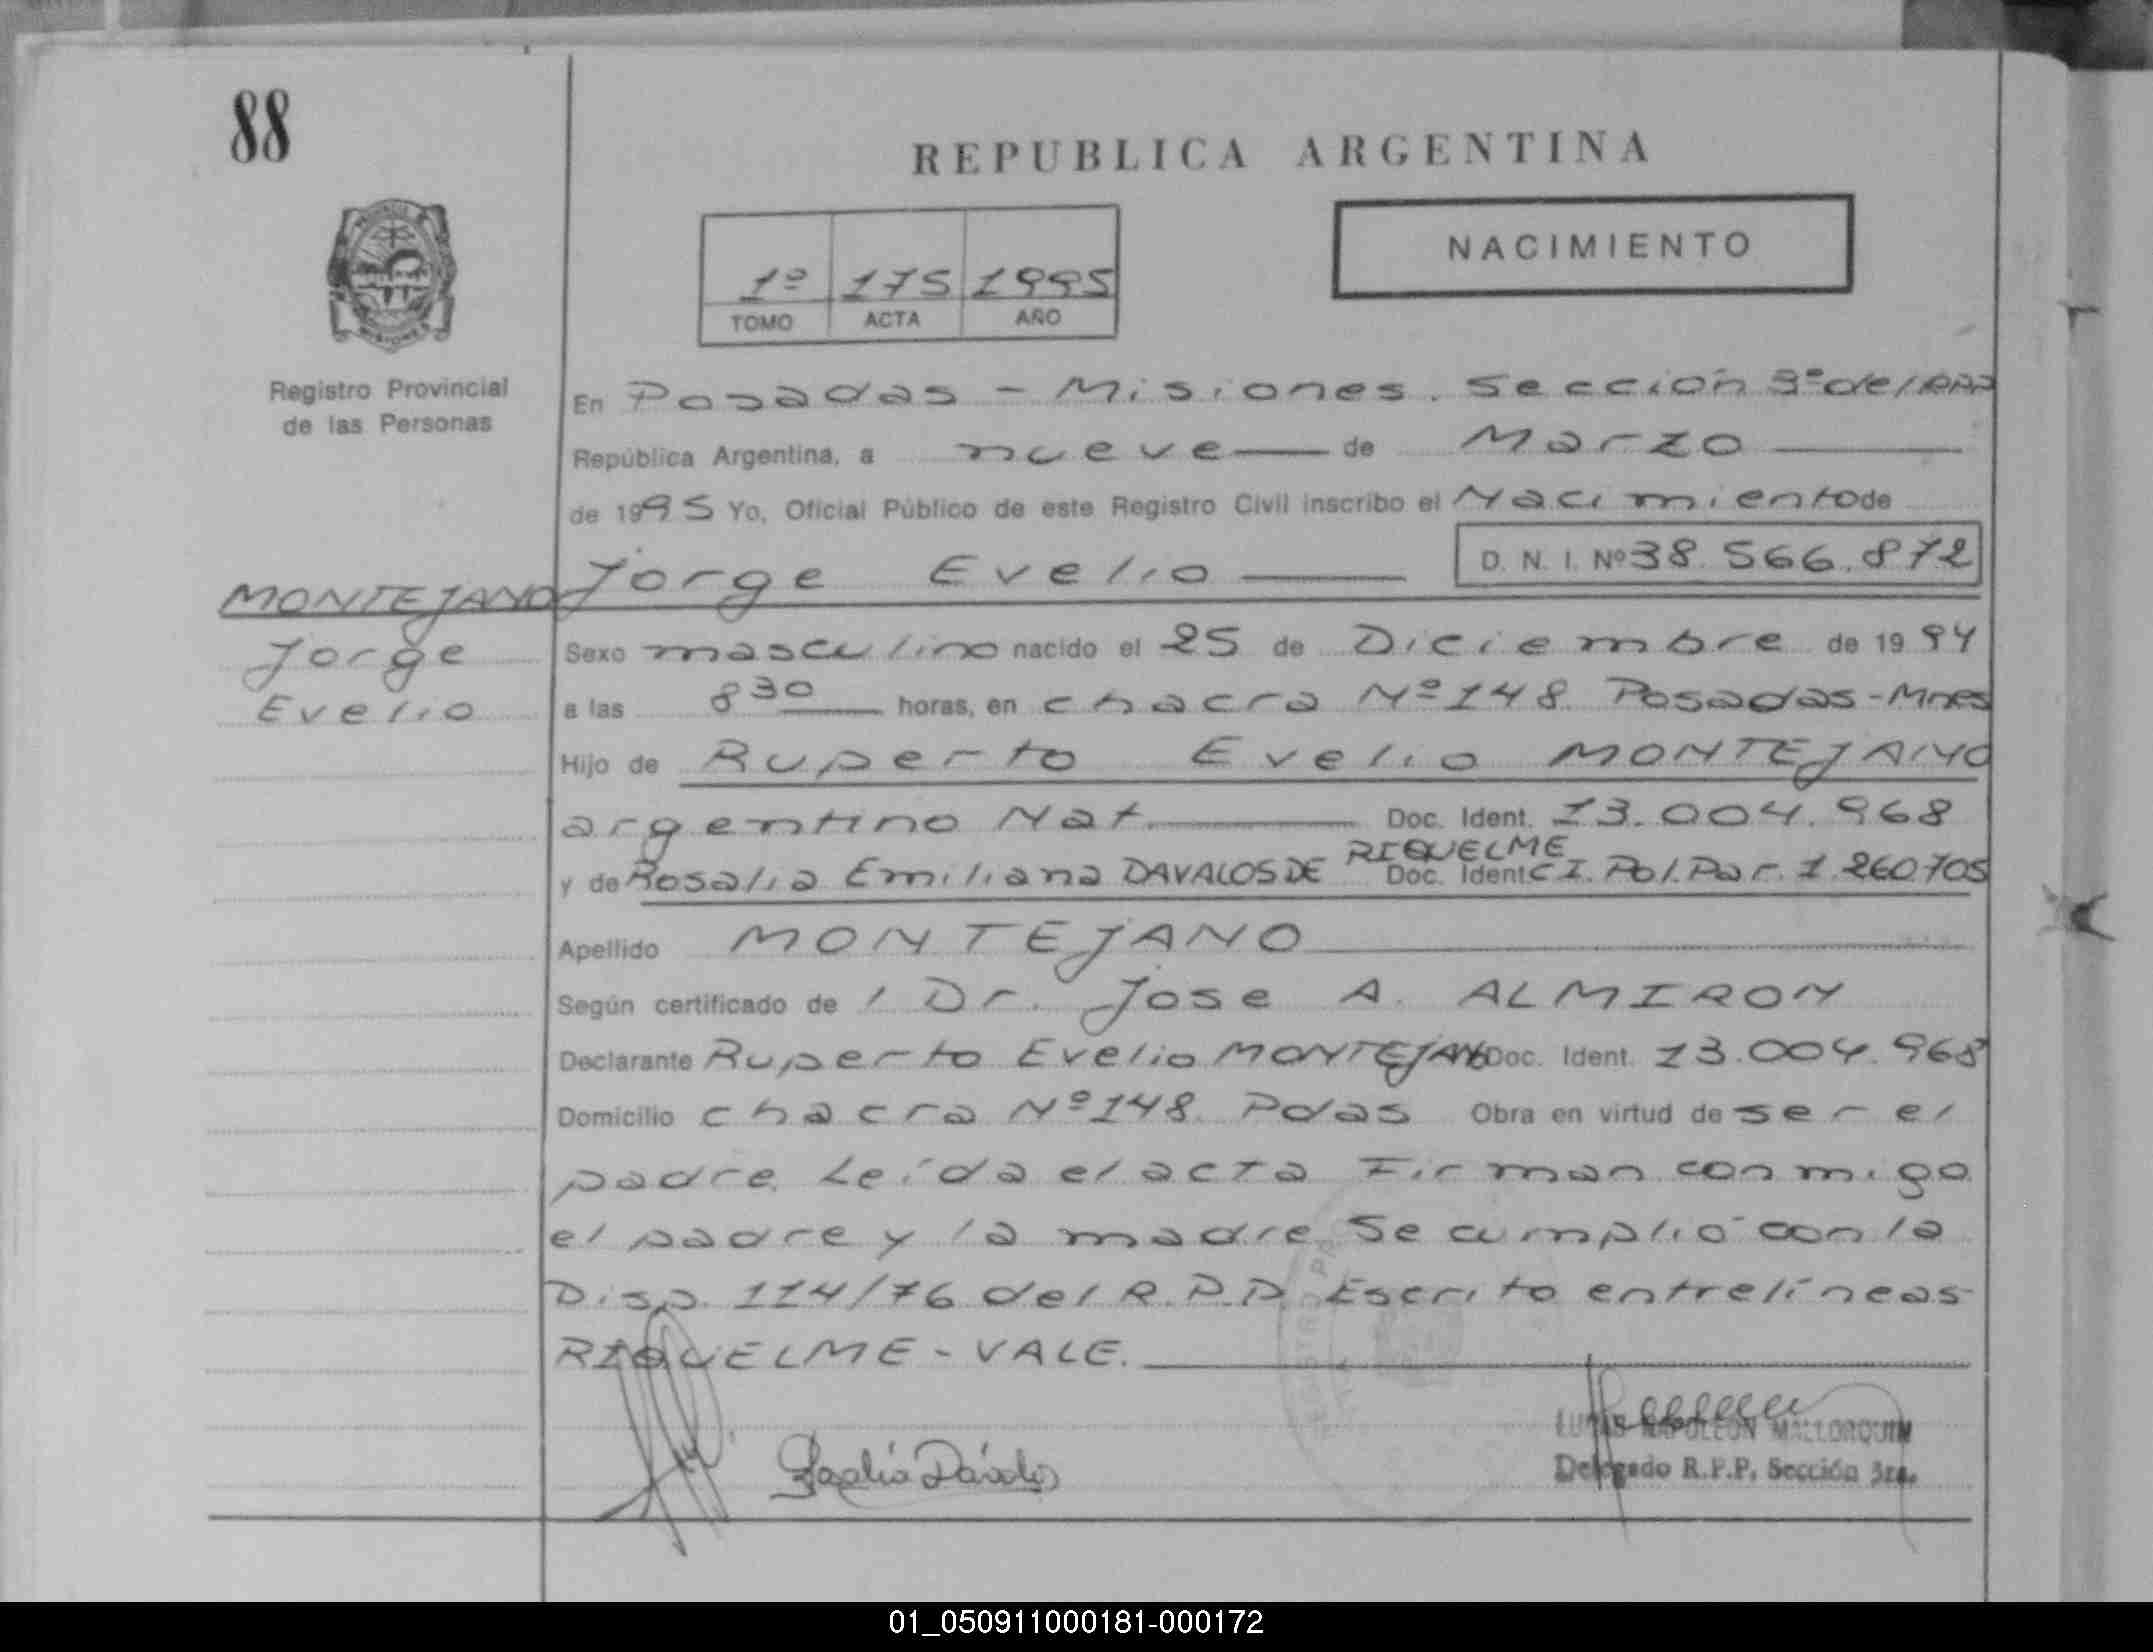 88
REPUBLICA ARGENTINA
NACIMIENTO
1º 175 1995
TOMO ACTA AÑO
Registro Provincial
de las Personas
En Posadas - Misiones. Sección 3º del RPP
República Argentina, a nueve de Marzo
de 1995 Yo, Oficial Público de este Registro Civil inscribo el Nacimiento de
D. N. I. Nº 38.566.872
MONTEJANO Jorge Evelio
Jorge
Evelio
Sexo masculino nacido el 25 de Diciembre de 1994
a las 8 30 horas, en chacra Nº 148. Posadas-Mnes
Hijo de Ruperto Evelio MONTEJANO
argentino Nat. Doc. Ident. 13.004.968
RIQUELME
y de Rosalia Emiliana DAVALOS DE Doc. Ident C I. Pol. Par. 1.260.705
Apellido MONTEJANO
Según certificado de / Dr. Jose A. ALMIRON
Declarante Ruperto Evelio MONTEJANO Doc. Ident. 13.004.968
Domicilio chacra Nº 148. Pdas Obra en virtud de ser el
padre. Leída el acta Firman conmigo
el padre y la madre. Se cumplió con la
Disp. 114/76 del R.P.P. Escrito entrelíneas
RIQUELME - VALE.
Rosalia Dávalos
LUCAS NAPOLEON MALLORQUIN
Delegado R.P.P. Sección 3ra.
01_050911000181-000172